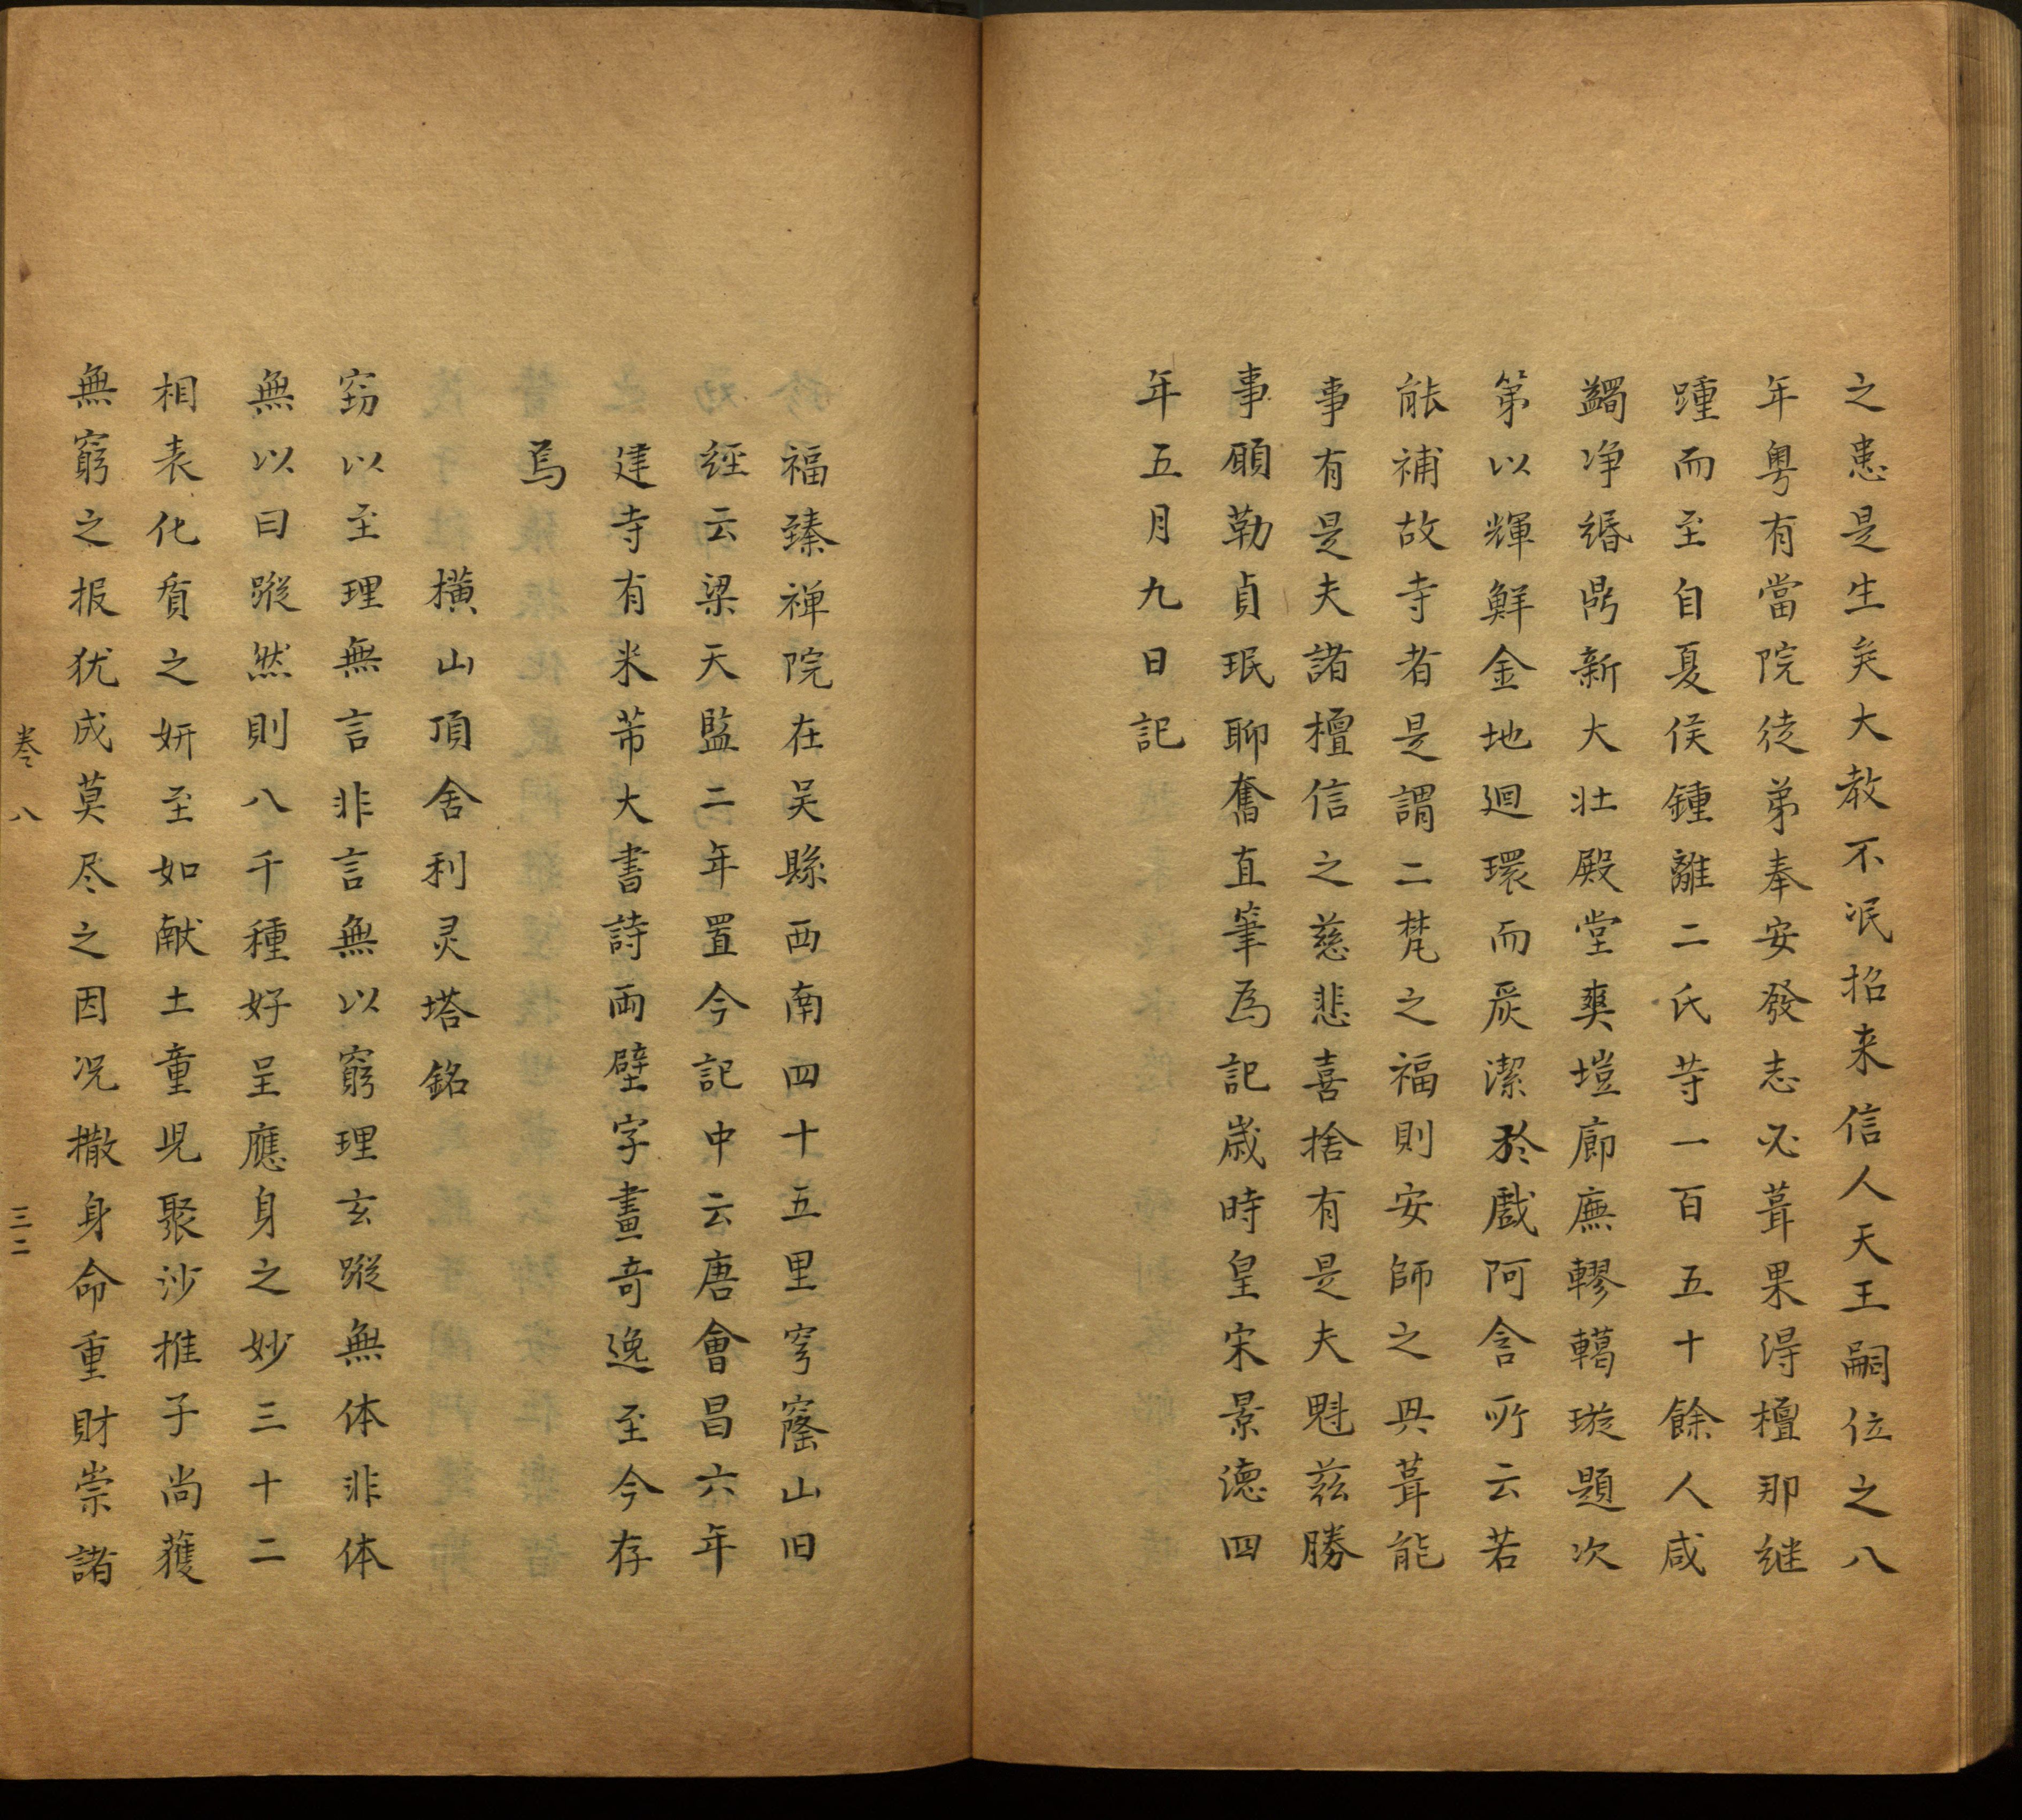 之患是生矣大教不泯招来信人天王嗣位之八
年粤有當院徒弟奉安發志必葺果得檀那継
踵而至自夏侯鍾離二氏䓁一百五十餘人咸
蠲净緡鼎新大壮殿堂爽塏廊廡轇轕璇題次
第以輝鮮金地廻環而㞡潔於戲阿含所云若
能補故寺者是謂二梵之福則安師之具葺能
事有是夫諸檀信之慈悲喜捨有是夫魁兹勝
事願勒貞珉聊奮直筆為記嵗時皇宋景德四
年五月九日記
福臻禅院在吴縣西南四十五里穹窿山旧
經云梁天監二年置今記中云唐會昌六年
建寺有米芾大書詩兩壁字畫竒逸至今存
焉
橫山頂舍利灵塔銘
窃以至理無言非言無以窮理玄蹤無体非体
無以曰蹤然則八千種好呈應身之妙三十二
相表化質之妍至如献土童児聚沙推子尚獲
無窮之报犹成莫尽之因况撒身命重財崇諸
卷八
三二